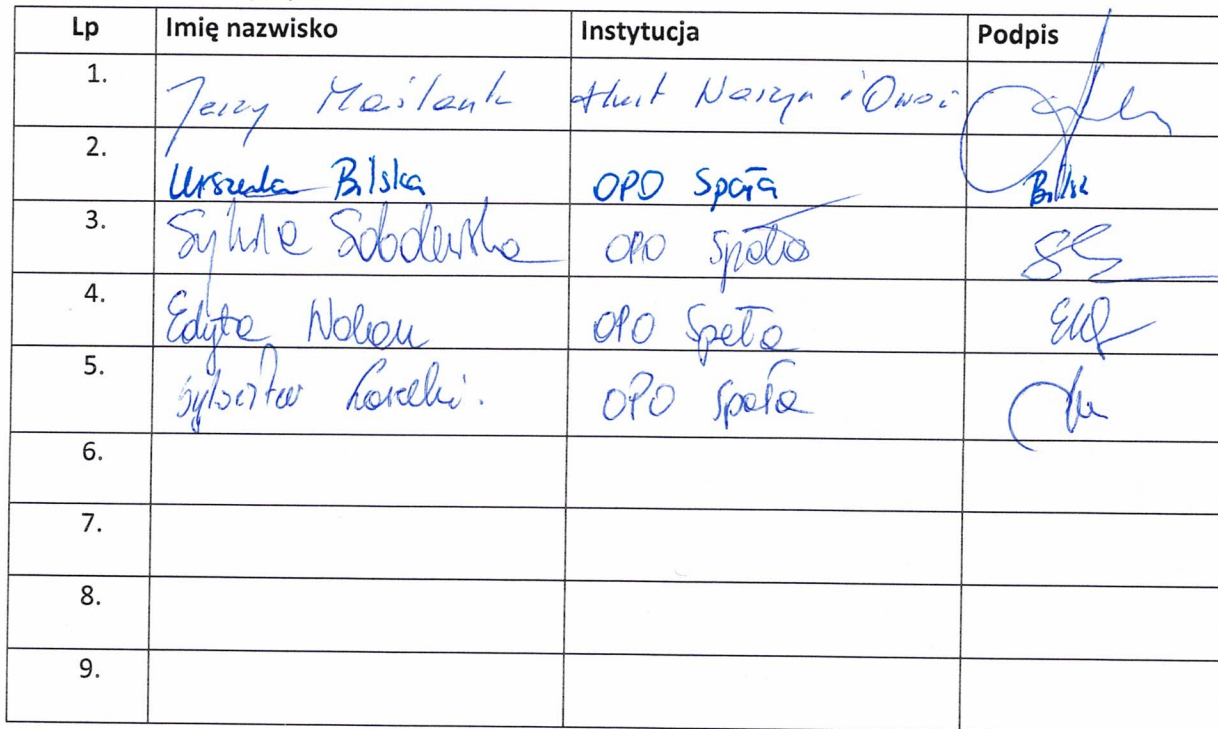 Lp Imię nazwisko Instytucja Podpis
1. Jerzy Maślank Hurt Warzyw i Owoc
2. Urszula Bilska OPO Spała Bilsk
3. Sylwia Sobolewska OPO Spała
4. Edyta OPO Spała
5. Sylwester OPO Spała
6.
7.
8.
9.